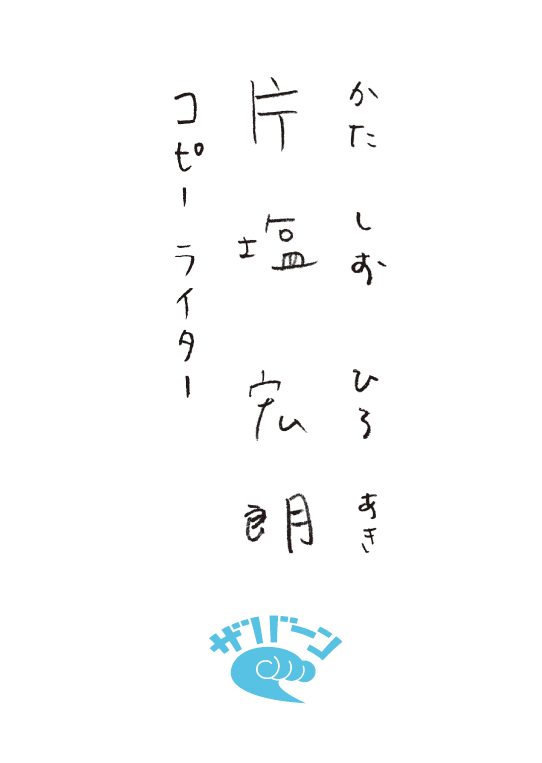 かたしおひろあき
片塩宏朗
コピーライター
ザバーン